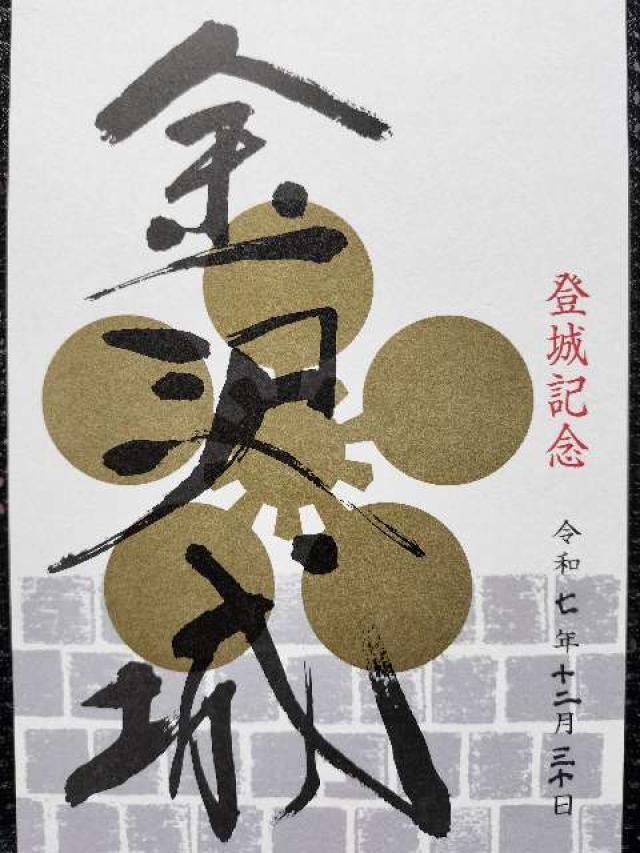 登城記念
令和七年十二月三十日
金沢城